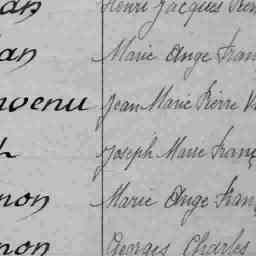 an Henri Jacques
an Marie Ange Fran
nvenu Jean Marie Pierre V
h Joseph Marie Franç
non Marie Ange Franç
non Georges Charles